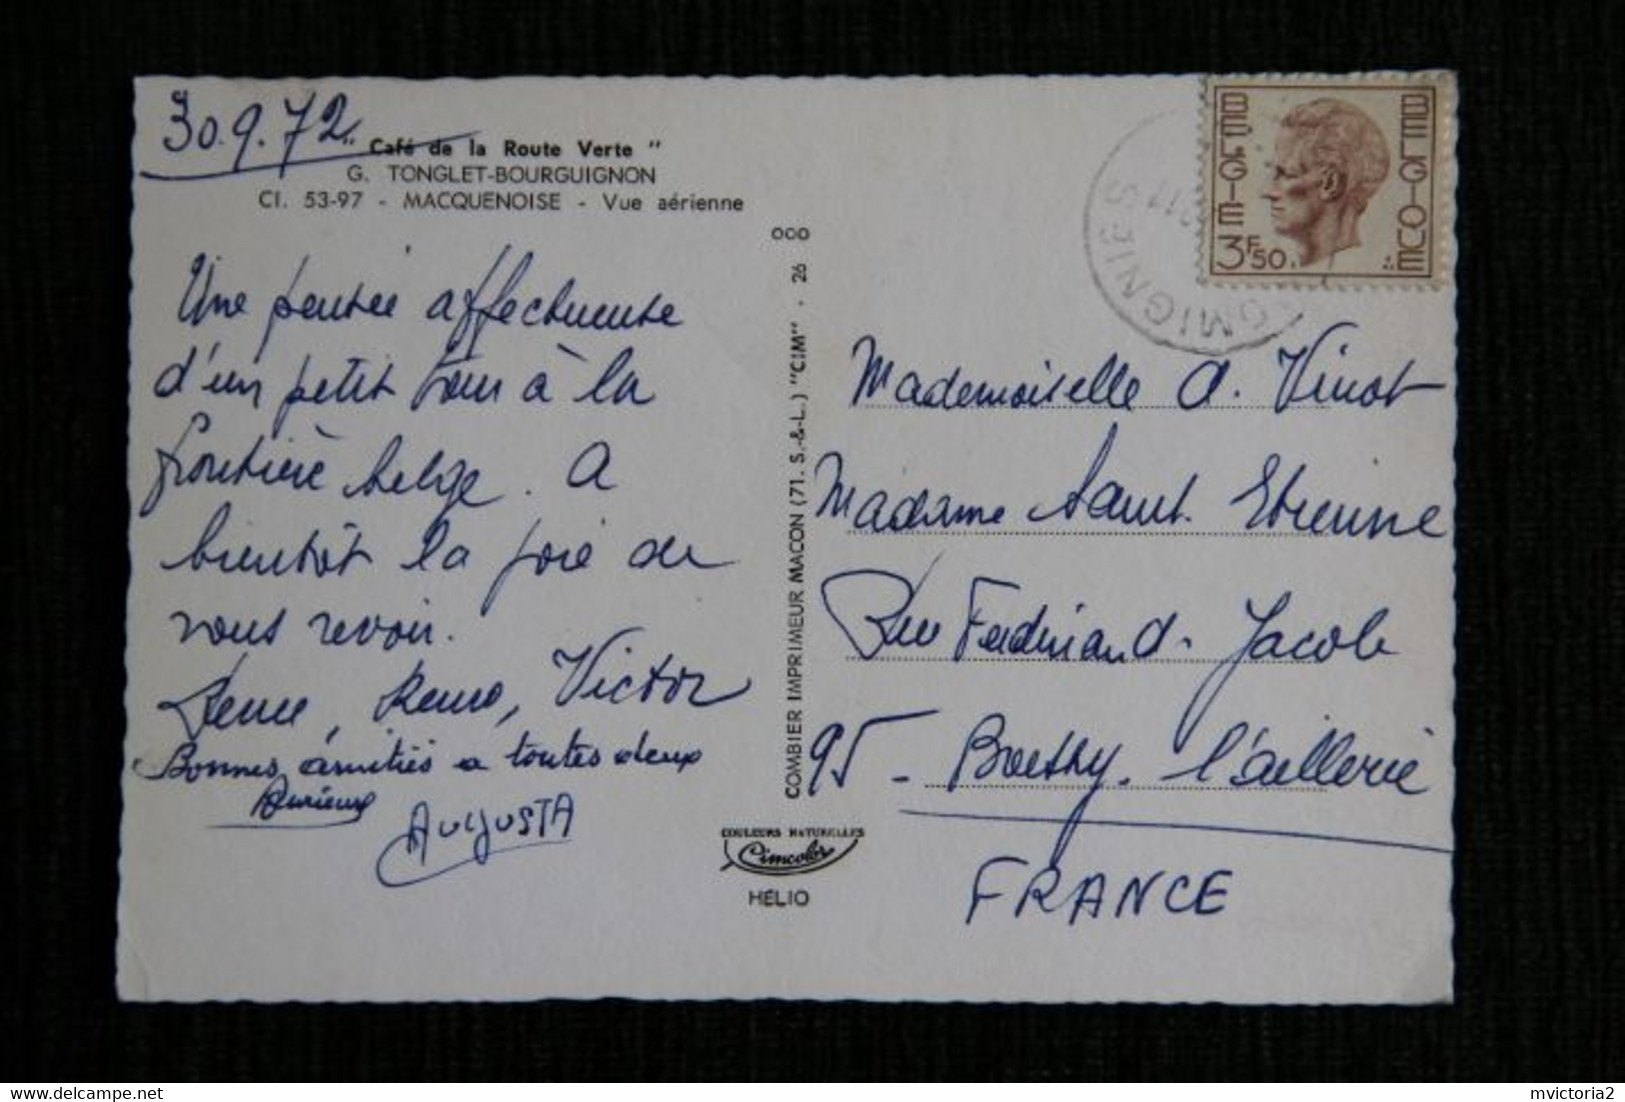 30.9.72
"Café de la Route Verte"
G. TONGLET-BOURGUIGNON
CI. 53-97 - MACQUENOISE - Vue aérienne
Une pensée affectueuse
d'un petit tour à la
frontière belge. A
bientôt la joie de
vous revoir.
Victor
Bonnes amitiés a toutes deux
AUGUSTA
COMBIER IMPRIMEUR MACON (71. S.-&-L.) "CIM" . 26 000
COULEURS NATURELLES
Cimcolor
HELIO
BELGIE
BELGIQUE
3F50
MIGNIES
Mademoiselle A. Vinot
Madame Saint. Etienne
Rue Ferdinand. Jacob
95 - Boethy. l'aillerie
FRANCE
mvictoria2